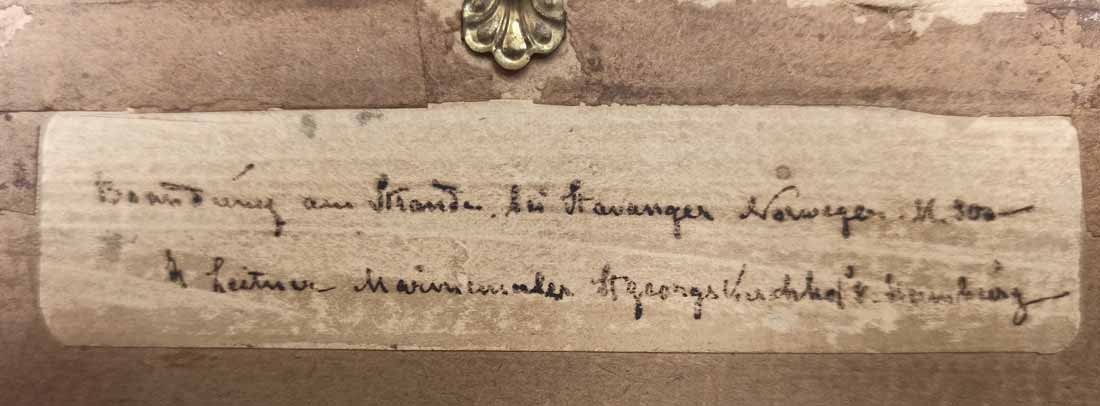 Brandung am Strande bei Stavanger Norwegen M. 300
Leitner Marinemaler St Georgs Kirchhof Hamburg